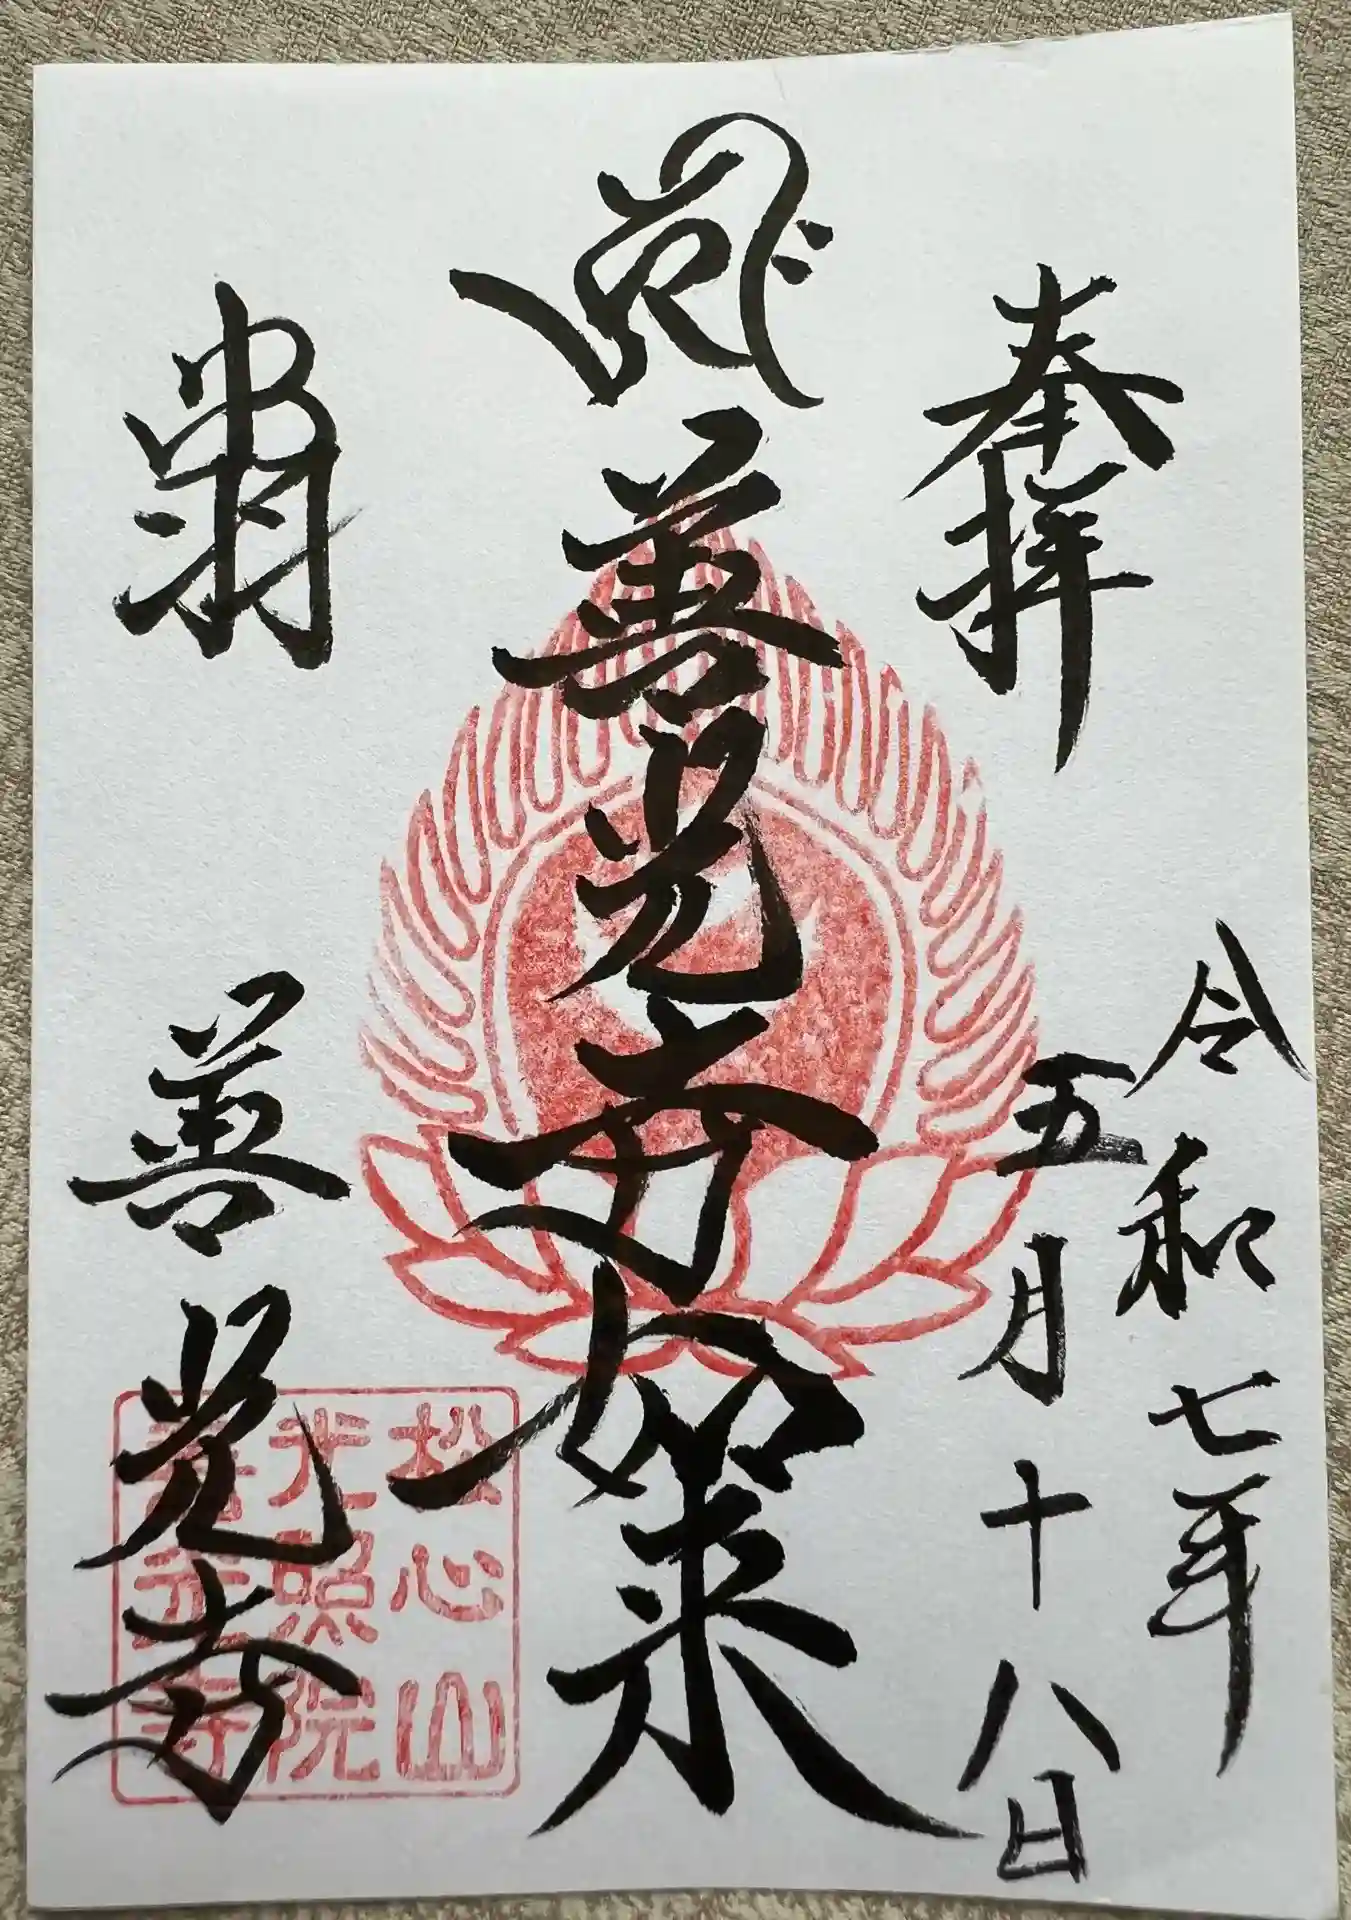 奉拝
令和七年
五月十八日
善光寺如来
出羽
善光寺
松心山
光照院
善光寺